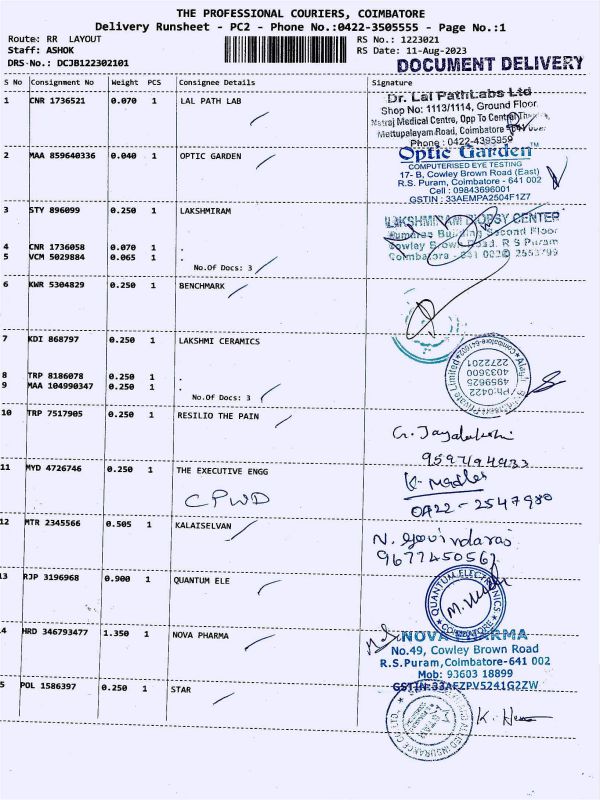 THE PROFESSIONAL COURIERS, COIMBATORE
Delivery Runsheet - PC2 - Phone No.:0422-3505555 - Page No.:1
Route: RR LAYOUT
RS No.: 1223021
Staff: ASHOK
RS Date: 11-Aug-2023
DRS-No.: DCJB122302101
DOCUMENT DELIVERY
S No Consignment No Weight PCS Consignee Details Signature
1 CNR 1736521 0.070 1 LAL PATH LAB
Dr. Lal PathLabs Ltd
Shop No: 1113/1114, Ground Floor
Natraj Medical Centre, Opp To Central Theatre,
Mettupalayam Road, Coimbatore
Phone : 0422-4395959
2 MAA 859640336 0.040 1 OPTIC GARDEN
Optic Garden™
COMPUTERISED EYE TESTING
17- B, Cowley Brown Road (East)
R.S. Puram, Coimbatore - 641 002
Cell : 09843696001
GSTIN : 33AEMPA2504F1Z7
3 STY 896099 0.250 1 LAKSHMIRAM
LAKSHMIRAM BIOPSY CENTER
Building Second Floor
Cowley Brown Road, R S Puram
Coimbatore - 641 002 2553799
4 CNR 1736058 0.070 1 .
5 VCM 5029884 0.065 1 .
No.Of Docs: 3
6 KWR 5304829 0.250 1 BENCHMARK
7 KDI 868797 0.250 1 LAKSHMI CERAMICS
Private Limited
Coimbatore-641002
Ph:0422
4959625
4033600
2272201
8 TRP 8186078 0.250 1 .
9 MAA 104990347 0.250 1 .
No.Of Docs: 3
10 TRP 7517905 0.250 1 RESILIO THE PAIN
G. Jayalakshi
9597194933
11 MYD 4726746 0.250 1 THE EXECUTIVE ENGG
CPWD
0422-2547980
12 MTR 2345566 0.505 1 KALAISELVAN
N. Govindaraj
9677450561
13 RJP 3196968 0.900 1 QUANTUM ELE
QUANTUM ELECTRONICS
COIMBATORE
4 HRD 346793477 1.350 1 NOVA PHARMA
NOVA PHARMA
No.49, Cowley Brown Road
R.S.Puram, Coimbatore-641 002
Mob: 93603 18899
GSTIN:33AFZPV5241G2ZW
5 POL 1586397 0.250 1 STAR